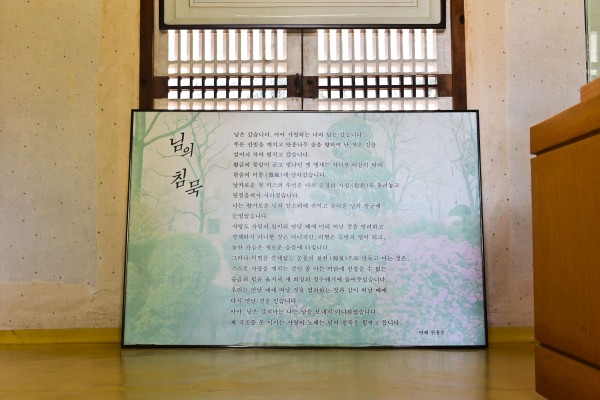 님의 침묵
님은 갔습니다. 아아 사랑하는 나의 님은 갔습니다.
푸른 산빛을 깨치고 단풍나무 숲을 향하여 난 작은 길을
걸어서 차마 떨치고 갔습니다.
황금의 꽃같이 굳고 빛나던 옛 맹세는 차디찬 티끌이 되어
한숨의 미풍(微風)에 날아갔습니다.
날카로운 첫 키스의 추억은 나의 운명의 지침(指針)을 돌려놓고
뒷걸음쳐서 사라졌습니다.
나는 향기로운 님의 말소리에 귀먹고 꽃다운 님의 얼굴에
눈멀었습니다.
사랑도 사람의 일이라 만날 때에 미리 떠날 것을 염려하고
경계하지 아니한 것은 아니지만, 이별은 뜻밖의 일이 되고,
놀란 가슴은 새로운 슬픔에 터집니다.
그러나 이별을 쓸데없는 눈물의 원천(源泉)으로 만들고 마는 것은
스스로 사랑을 깨치는 것인 줄 아는 까닭에 걷잡을 수 없는
슬픔의 힘을 옮겨서 새 희망의 정수박이에 들어부었습니다.
우리는 만날 때에 떠날 것을 염려하는 것과 같이 떠날 때에
다시 만날 것을 믿습니다.
아아, 님은 갔지마는 나는 님을 보내지 아니하였습니다.
제 곡조를 못 이기는 사랑의 노래는 님의 침묵을 휩싸고 돕니다.
만해 한용운